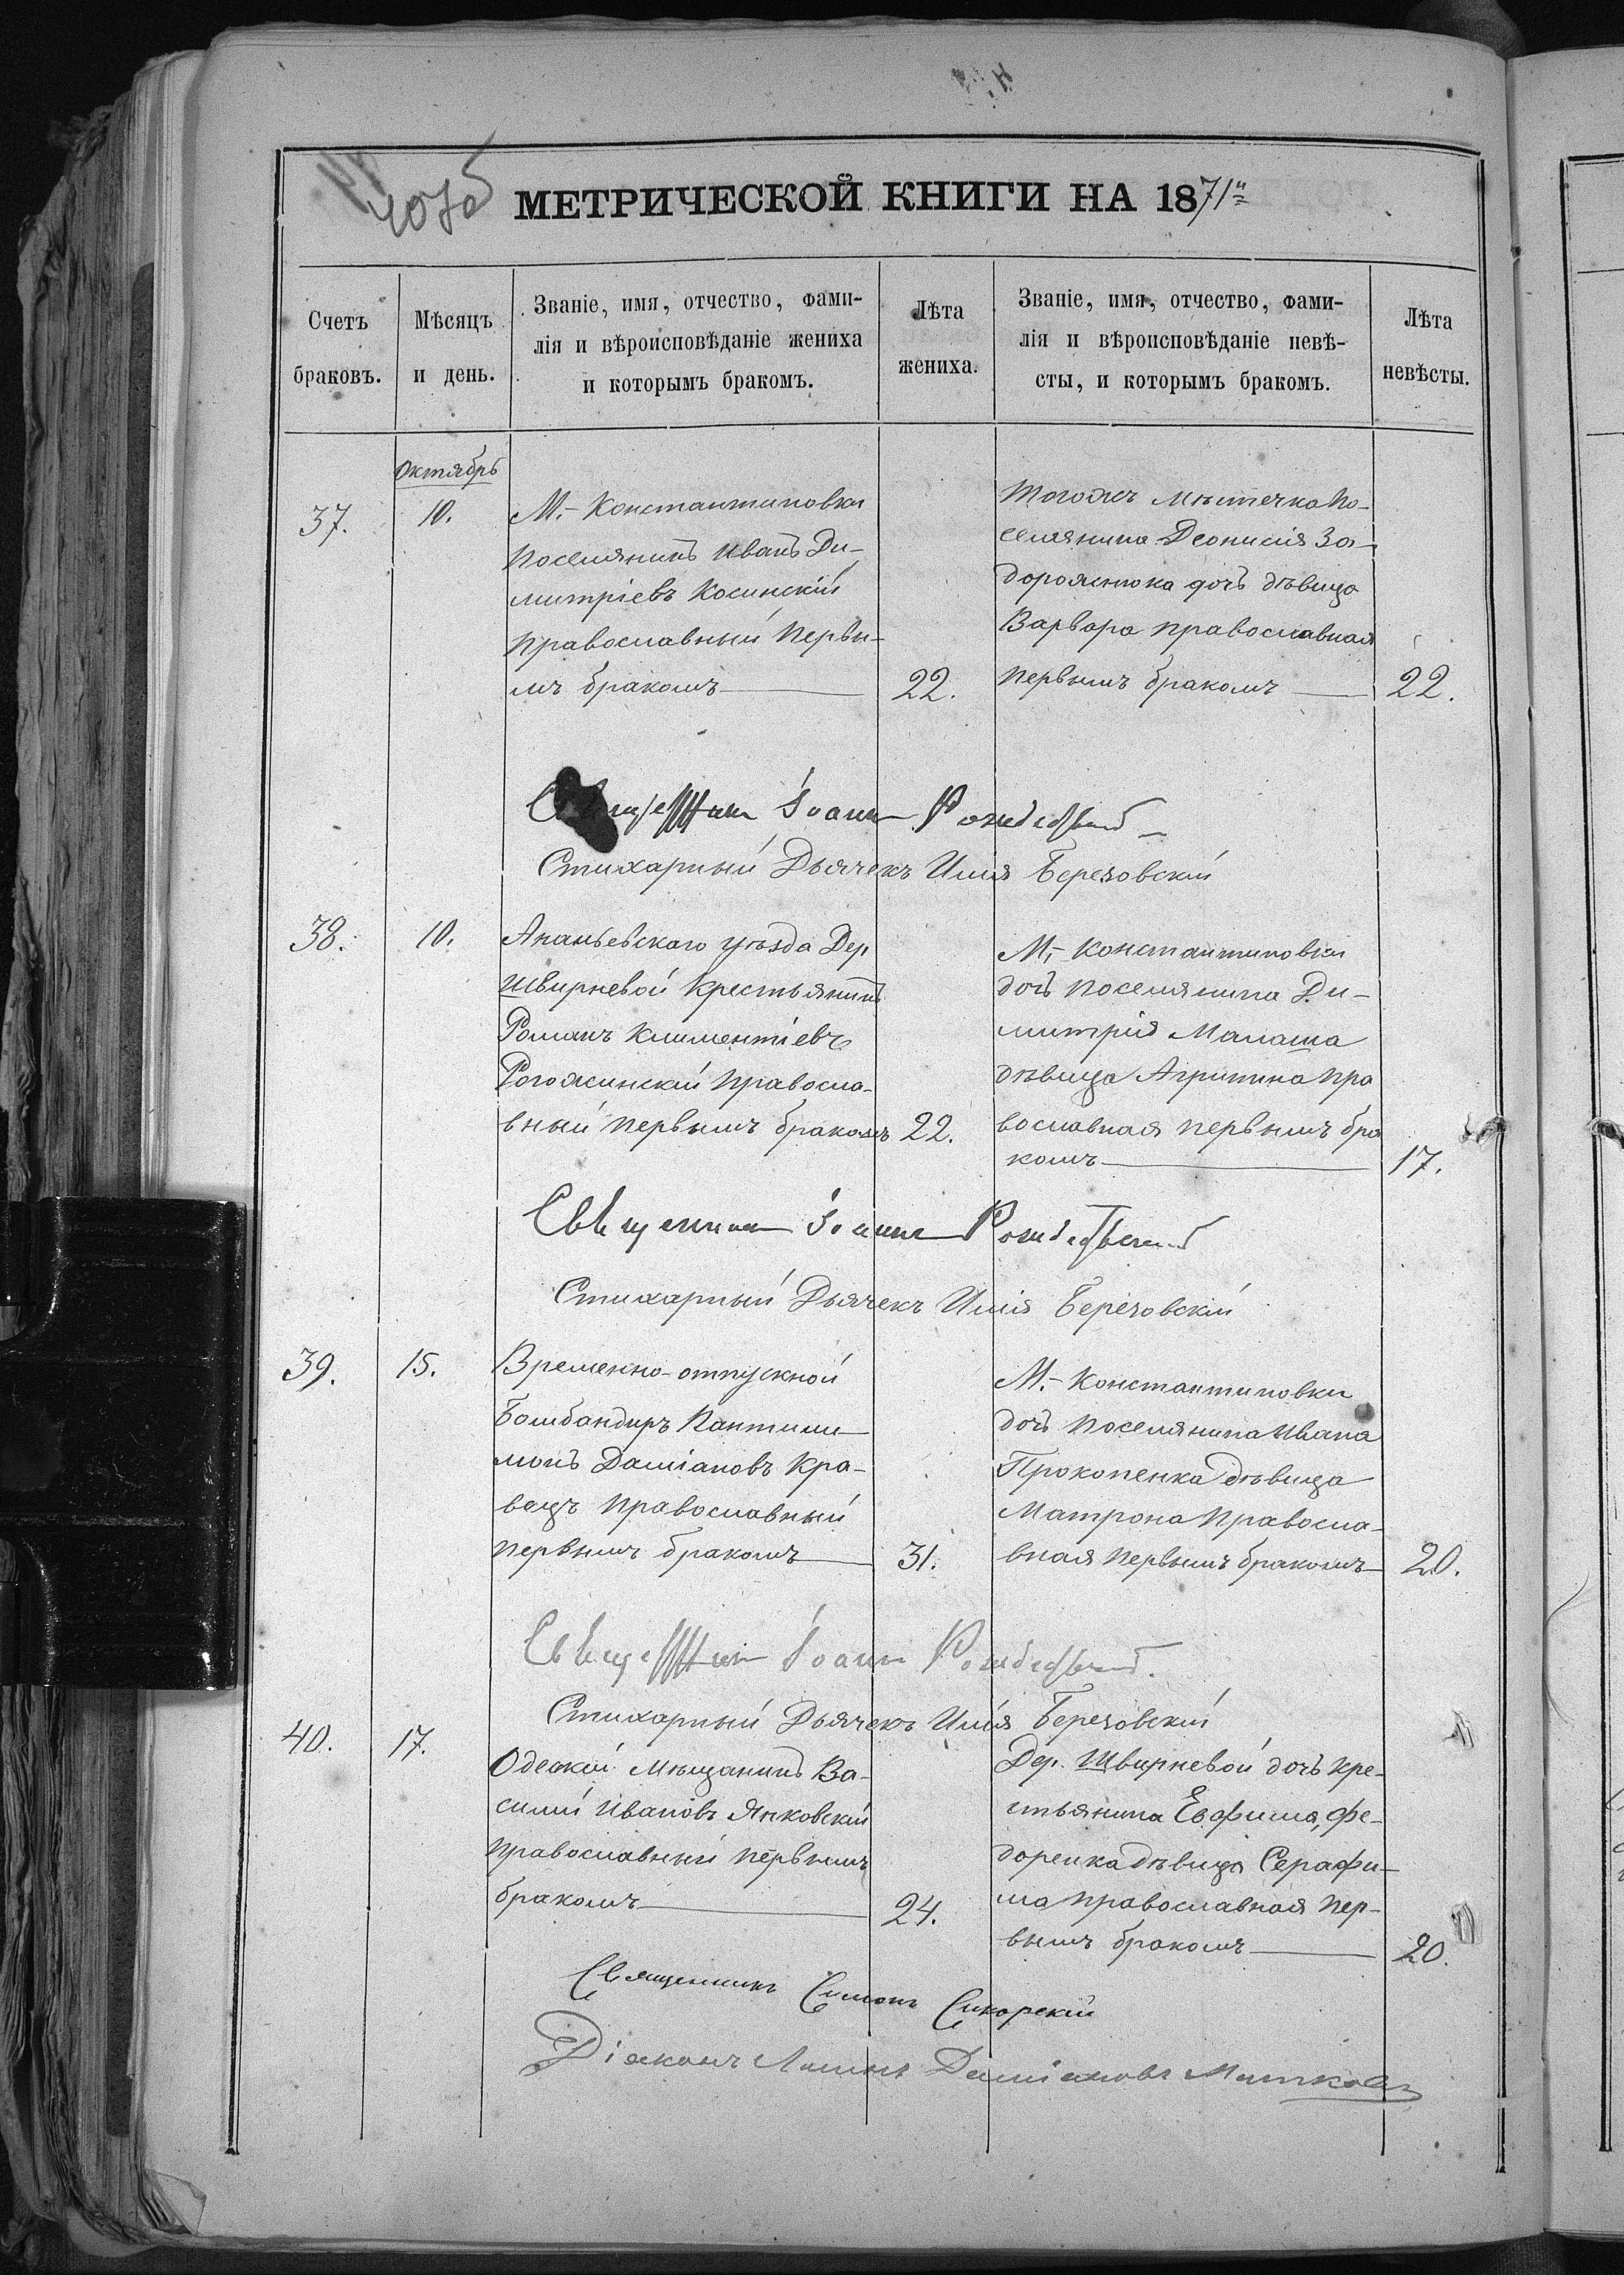 407об
МЕТРИЧЕСКОЙ КНИГИ НА 1871й
Счетъ браковъ.
Мѣсяцъ и день.
Званіе, имя, отчество, фами-
лія и вѣроисповѣданіе жениха
и которымъ бракомъ.
Лѣта жениха.
Званіе, имя, отчество, фами-
лія и вѣроисповѣданіе невѣ-
сты, и которымъ бракомъ.
Лѣта невѣсты.
Октябрь
37.
10.
М.- Константиновки
Поселянинъ Иванъ Ди-
митріевъ Косинскій
Православный Первы-
мъ бракомъ
22.
Тогожъ мѣстечка По-
селянина Деонисія За-
дорожнюка дочь дѣвица
Варвара православная
первымъ бракомъ
22.
Священникъ Іоаннъ
Стихарный Дьячекъ Илія Березовскій
38.
10.
Ананьевскаго уѣзда Дер
Швирневой Крестьянинъ
Романъ Климентіевъ
Рогожинскій Правосла-
вный первымъ бракомъ
22.
М,- Константиновки
дочь Поселянина Ди-
митрія Малаша
дѣвица Агрипина Пра
вославная первымъ бра
комъ
17.
Свѣщенникъ Іоаннъ
Стихарный Дьячекъ Илія Березовскій
39.
15.
Временно-отпускной
Бомбандиръ Пантили
монъ Даміановъ Кра-
вецъ Православный
первымъ бракомъ
31.
М.- Константиновки
дочь Поселянина Ивана
Прокопенка дѣвица
Матрона Правосла-
вная Первымъ бракомъ
20.
Свѣщенникъ Іоаннъ
Стихарный Дьячекъ Илія Березовскій
40.
17.
Одескій Мѣщанинъ Ва-
силій Ивановъ Янковскій
Православный первымъ
бракомъ
24.
Дер. Швирневой дочь кре-
стьянина Евфима, Фе-
доренка дѣвица Серафи-
ма православная пер-
вымъ бракомъ
20.
Священникъ Симонъ Сикорскій
Діаконъ Даміановъ